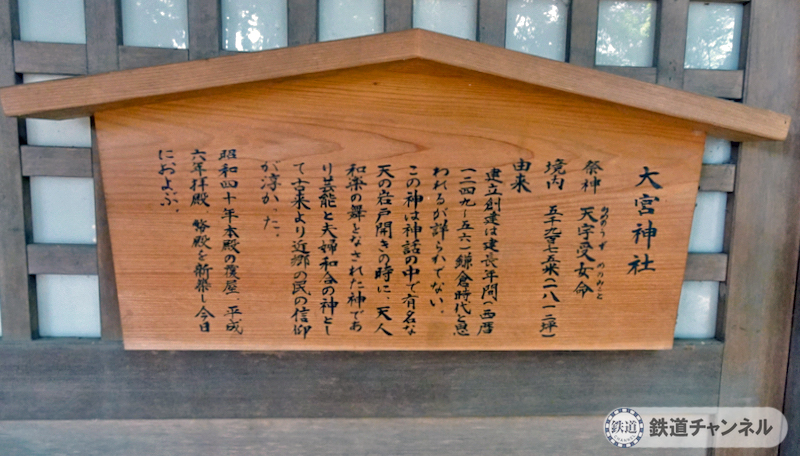 大宮神社
祭神 天宇受女命
あめのうず めのみこと
境内
由来
建立創建は建長年間(西暦
一二四九~五六)鎌倉時代と思
われるが詳らかでない。
この神は神話の中で有名な
天の岩戸開きの時に、天人
和楽の舞をなされた神であ
り芸能と夫婦和合の神とし
て古来より近郷の民の信仰
が淳かった。
昭和四十年本殿の覆屋、平成
六年拝殿 幣殿を新築し今日
におよぶ。
鉄道
CHANNEL
鉄道チャンネル